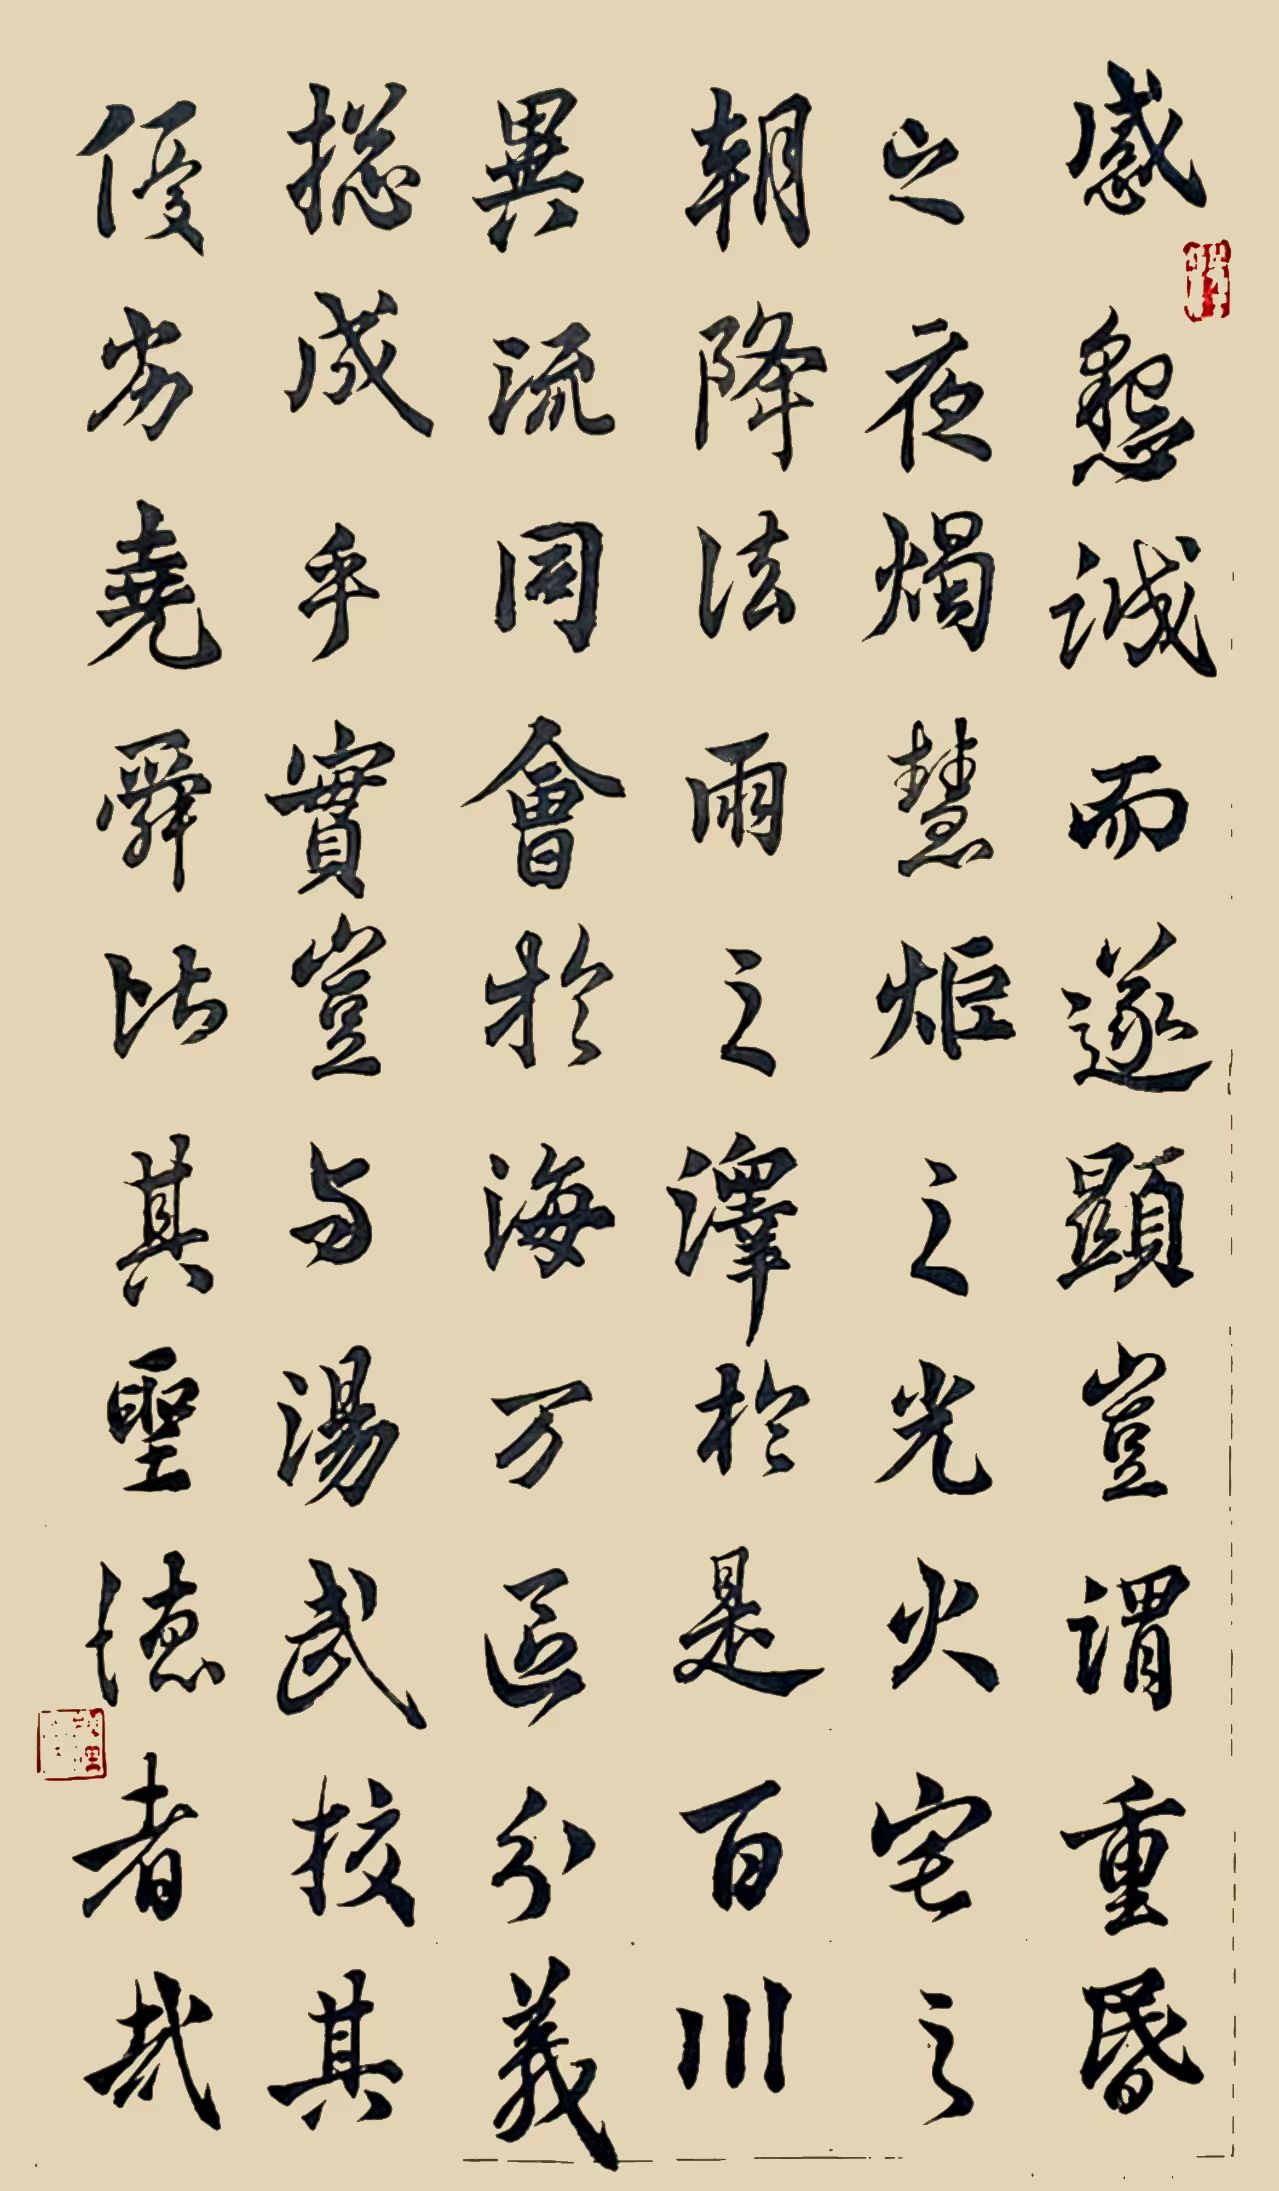 感懇誠而遂顯豈謂重昏
之夜燭慧炬之光火宅之
朝降法雨之澤於是百川
異流同會於海万區分義
揔成乎實豈与湯武挍其
優劣堯舜比其聖德者哉